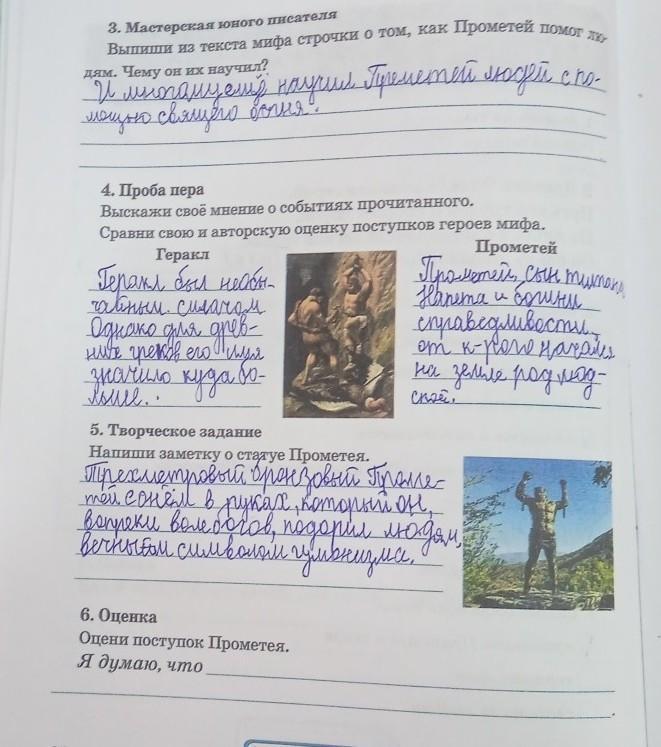 3. Мастерская юного писателя
Выпиши из текста мифа строчки о том, как Прометей помог лю-
дям. Чему он их научил?
И многому ещё научил Прометей людей с по-
мощью священого огня.
4. Проба пера
Выскажи своё мнение о событиях прочитанного.
Сравни свою и авторскую оценку поступков героев мифа.
Геракл
Геракл был необы-
чайным силачом
Однако для древ-
них греков его имя
значило куда бо-
льше.
Прометей
Прометей, сын титана
Иапета и богини
справедливости,
от к-рого начался
на земле род люд-
ской.
5. Творческое задание
Напиши заметку о статуе Прометея.
Трехметровый бронзовый Проме-
тей с огнём в руках, который он,
вопреки воле богов, подарил людям,
вечным символом гуманизма.
6. Оценка
Оцени поступок Прометея.
Я думаю, что